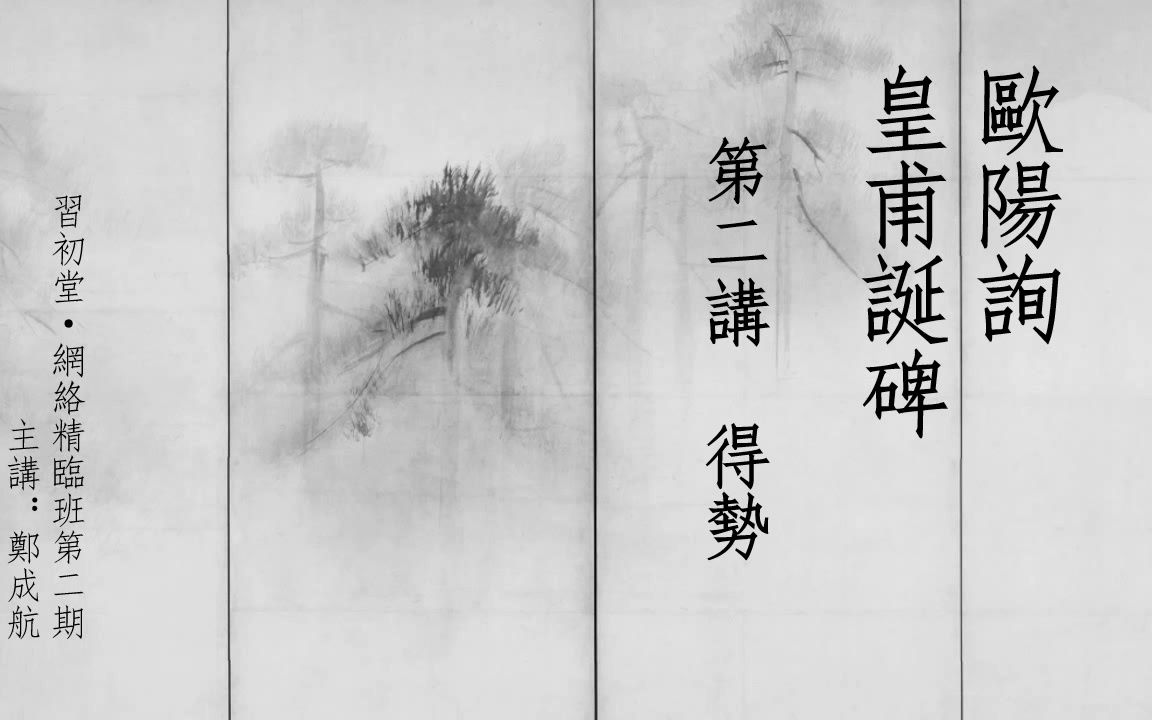 歐陽詢
皇甫誕碑
第二講 得勢
習初堂・網絡精臨班第二期
主講：鄭成航